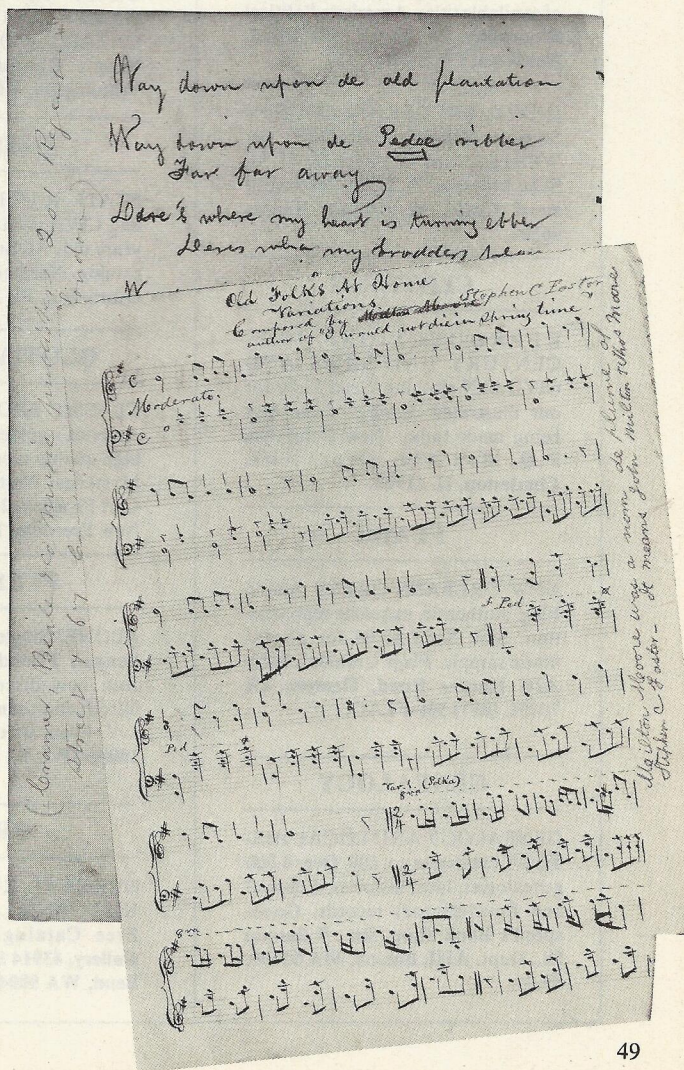 Way down upon de old plantation
Way down upon de Pedee ribber
Far far away
Dere's where my heart is turning ebber
Deres wha my brodders
W
(Cramer, Beale & Co Music publishers 201 Regent
Street & 67 London)
Old Folks At Home
Variations
Composed by Milton Moore Stephen C Foster
author of "I would not die in Spring time"
C
Moderato.
C
Ped
Ped
Var. 1 (Polka)
8va
2/4
2/4
8va
Milton Moore was a nom de plume of
Stephen C Foster - It means John Milton & Thos Moore
49